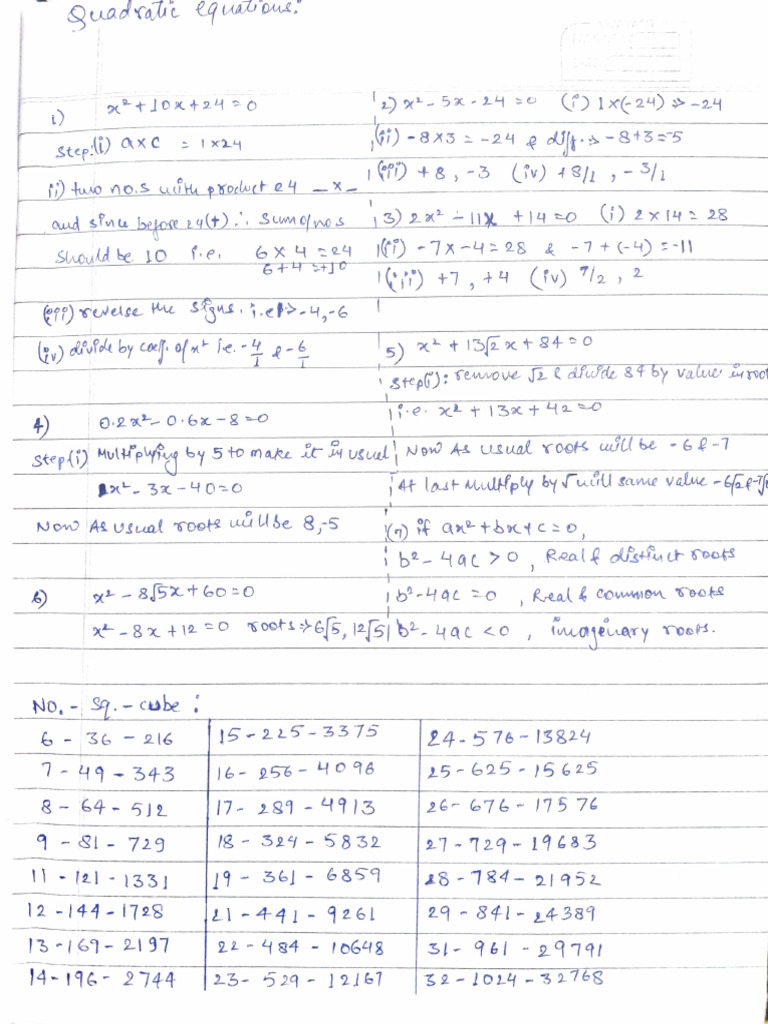 Quadratic equations:
1) x² + 10x + 24 = 0
Step:(i) a × c = 1 × 24
ii) two no.s with product 24 _ × _
and since before 24(+) ∴ sum of no.s
should be 10 i.e. 6 × 4 = 24
6 + 4 = +10
(iii) reverse the signs. i.e. => -4, -6
(iv) divide by coeff. of x² i.e. -4/1 & -6/1
4) 0.2x² - 0.6x - 8 = 0
Step(i) Multiplying by 5 to make it in usual
x² - 3x - 40 = 0
Now As usual roots will be 8, -5
6) x² - 8√5x + 60 = 0
x² - 8x + 12 = 0 roots => 6√5, 12√5
2) x² - 5x - 24 = 0 (i) 1 × (-24) => -24
(ii) -8 × 3 = -24 & diff. => -8 + 3 = -5
(iii) +8, -3 (iv) +8/1, -3/1
3) 2x² - 11x + 14 = 0 (i) 2 × 14 = 28
(ii) -7 × -4 = 28 & -7 + (-4) = -11
(iii) +7, +4 (iv) 7/2, 2
5) x² + 13√2x + 84 = 0
Step(i): remove √2 & divide 84 by value in root
i.e. x² + 13x + 42 = 0
Now As usual roots will be -6 & -7
At last multiply by √ will same value -6√2 & -7√
(7) if ax² + bx + c = 0,
b² - 4ac > 0, Real & distinct roots
b² - 4ac = 0, Real & common roots
b² - 4ac < 0, imagenary roots.
No. - Sq. - cube :
6 - 36 - 216
7 - 49 - 343
8 - 64 - 512
9 - 81 - 729
11 - 121 - 1331
12 - 144 - 1728
13 - 169 - 2197
14 - 196 - 2744
15 - 225 - 3375
16 - 256 - 4096
17 - 289 - 4913
18 - 324 - 5832
19 - 361 - 6859
21 - 441 - 9261
22 - 484 - 10648
23 - 529 - 12167
24 - 576 - 13824
25 - 625 - 15625
26 - 676 - 17576
27 - 729 - 19683
28 - 784 - 21952
29 - 841 - 24389
31 - 961 - 29791
32 - 1024 - 32768